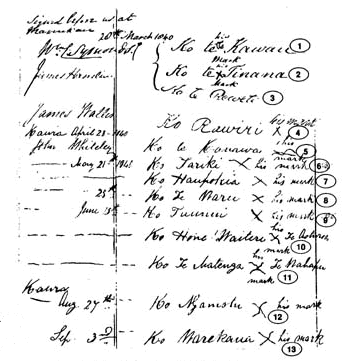 Signed before us at
20th March 1840
his
Ko te Kawau 1
Mark
James
Ko te Tinana 2
Mark
Ko te Reweti 3
James
Ko Rawiri X his mark 4
Kawia April 28 - 1840
his
John Whiteley
Ko te Kanawa X 5
mark
May 21st 1840
Ko Tariki X his mark 6
Ko Haupokia X his mark 7
25th
Ko Te Waru X his mark 8
June 15th
Ko Taunui X his mark 9
his
Ko Hone Waiteri X Te Aotearoa
mark 10
his
Ko Te Matenga X Te Wahapu
mark 11
Kawia
Aug. 27th
Ko Ngamotu X his mark
12
Sep. 3
Ko Warekawa X his mark
13